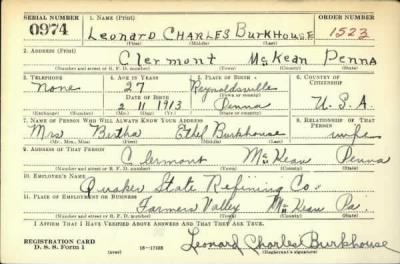 SERIAL NUMBER 1. NAME (Print) ORDER NUMBER
0974 Leonard CHARLES BurkHouse 1523
(First) (Middle) (Last)
2. ADDRESS (Print)
Clermont McKean Penna
(Number and street or R. F. D. number) (Town) (County) (State)
3. TELEPHONE 4. AGE IN YEARS 5. PLACE OF BIRTH 6. COUNTRY OF CITIZENSHIP
None 27 Reynoldsville
DATE OF BIRTH (Town or county)
2 11 1913 Penna U.S.A.
(Exchange) (Number) (Mo.) (Day) (Yr.) (State or country)
7. NAME OF PERSON WHO WILL ALWAYS KNOW YOUR ADDRESS 8. RELATIONSHIP OF THAT PERSON
Mrs Bertha Ethel Burkhouse wife
(Mr., Mrs., Miss) (First) (Middle) (Last)
9. ADDRESS OF THAT PERSON
Clermont McKean Penna
(Number and street or R. F. D. number) (Town) (County) (State)
10. EMPLOYER'S NAME
Quaker State Refining Co.
11. PLACE OF EMPLOYMENT OR BUSINESS
Farmers Valley McKean Pa.
(Number and street or R. F. D. number) (Town) (County) (State)
I AFFIRM THAT I HAVE VERIFIED ABOVE ANSWERS AND THAT THEY ARE TRUE.
REGISTRATION CARD
D. S. S. Form 1 (over) Leonard Charles Burkhouse
(Registrant's signature)